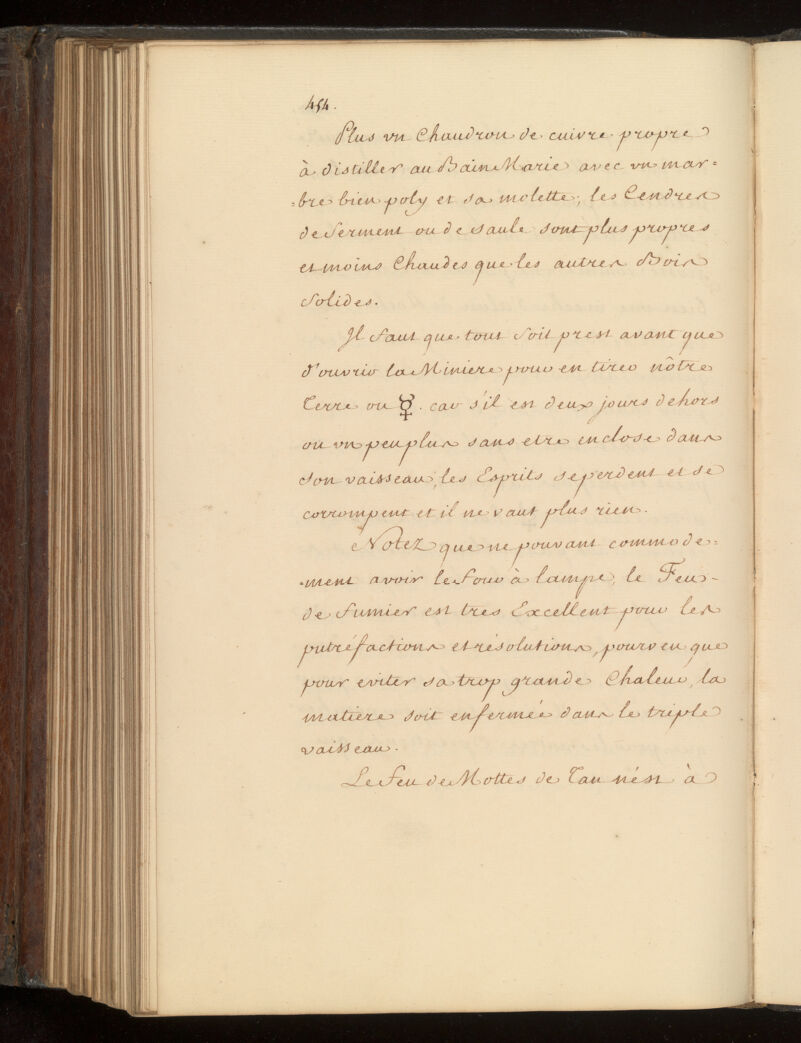 454.
Plus vn Chaudron de cuivre propre
à distiller au Bain Marie avec vn mar=
=bre bien poly et sa molette; les Cendres
de Serment ou de saule sont plus propres
et moins Chaudes que les autres Bois
Solides.
Il faut que tout soit prest avant que
d'ouvrir la Miniere pour en tirer nôtre
Terre ou ☿. car s'il est deux jours dehors
ou vn peu plus sans etre enclose dans
son vaisseau, les Esprits se perdent et se
corrompent et il ne vaut plus rien.
Notez que ne pouvant commode=
=ment avoir le four à lampe, le Feu
de fumier est tres Excellent pour les
putréfactions et résolutions, pourveu que
pour eviter sa trop grande Chaleur, la
matiere soit enfermée dans le triple
vaisseau.
Le feu de Mottes de Tan n'ést à